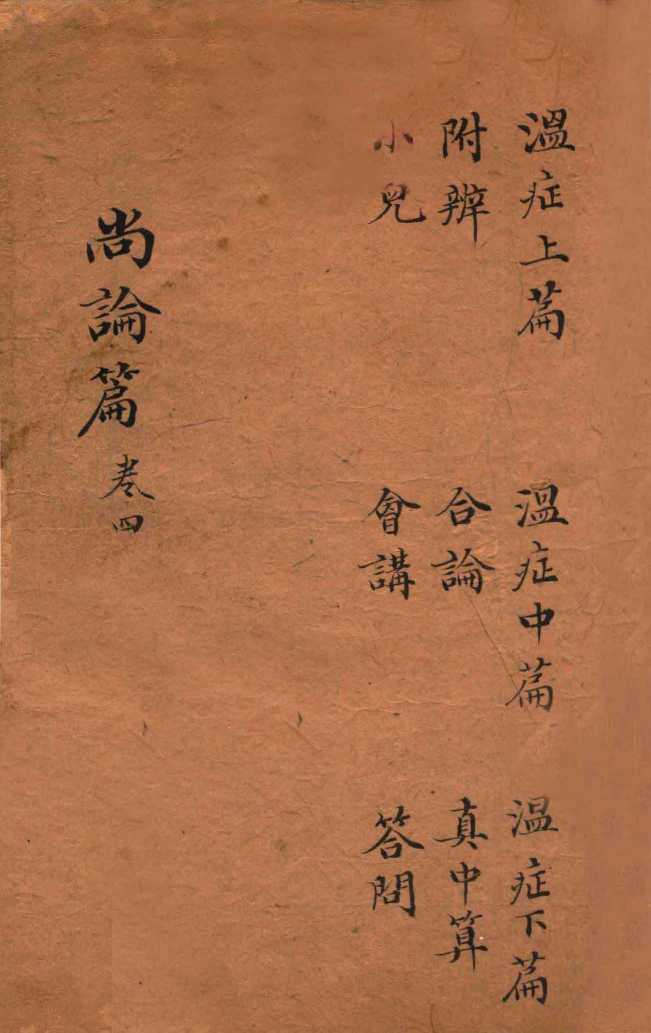 溫症上篇　溫症中篇　溫症下篇
附辨　合論　真中算
小兒　會講　答問
尚論篇 卷四